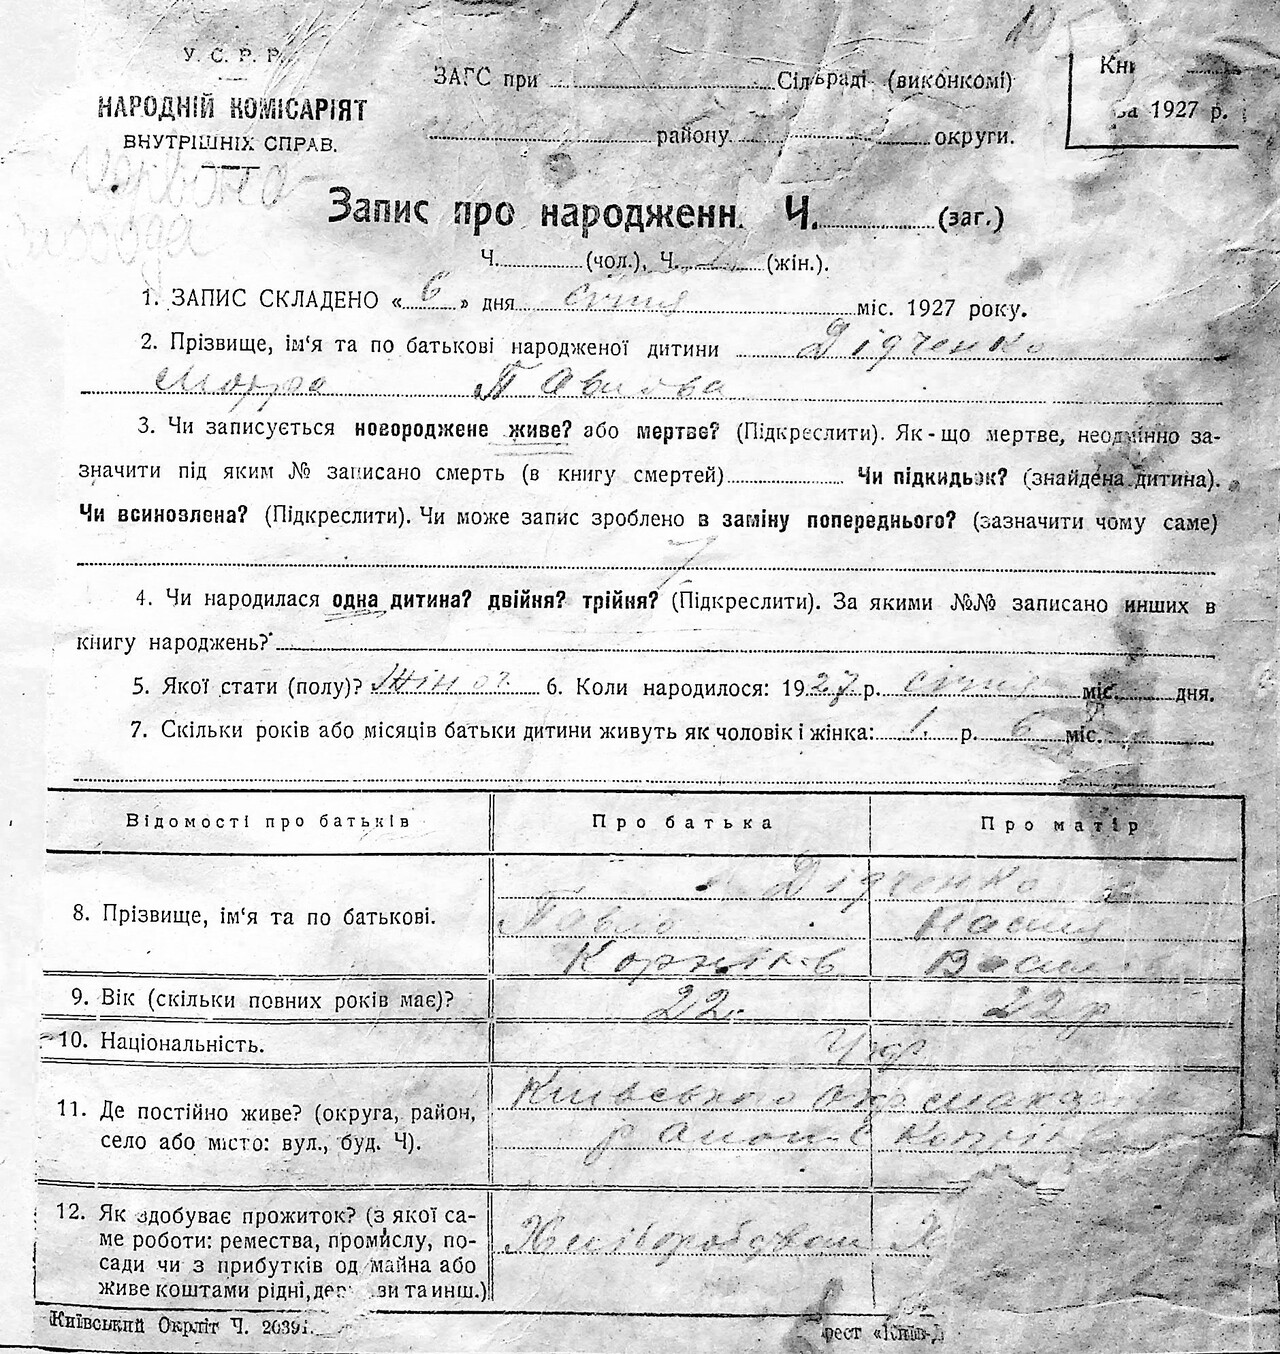 У. С. Р. Р.
НАРОДНІЙ КОМІСАРІЯТ
ВНУТРІШНІХ СПРАВ.
Червона
слобода
ЗАГС при Сільраді (виконкомі)
району округи.
Кни
за 1927 р.
Запис про народженн. Ч. (заг.)
Ч. (чол.), Ч. (жін.).
1. ЗАПИС СКЛАДЕНО « 6 » дня січня міс. 1927 року.
2. Прізвище, ім'я та по батькові народженої дитини Дідченко
Мотря Павлова
3. Чи записується новороджене живе? або мертве? (Підкреслити). Як-що мертве, неодмінно за-
значити під яким № записано смерть (в книгу смертей) Чи підкидьок? (знайдена дитина).
Чи всиновлена? (Підкреслити). Чи може запис зроблено в заміну попереднього? (зазначити чому саме)
4. Чи народилася одна дитина? двійня? трійня? (Підкреслити). За якими №№ записано инших в
книгу народжень?
5. Якої стати (полу)? Жіноч. 6. Коли народилося: 1927 р. січня міс. дня.
7. Скільки років або місяців батьки дитини живуть як чоловік і жінка: 1 р. 6 міс.
Відомості про батьків Про батька Про матір
Дідченко
8. Прізвище, ім'я та по батькові. Павло
Корнієв Васил
9. Вік (скільки повних років має)? 22 22 р
10. Національність. Укр
11. Де постійно живе? (округа, район, Київського Окр Макарів
село або місто: вул., буд. Ч). району с
12. Як здобуває прожиток? (з якої са-
ме роботи: ремества, промислу, по- Хліборобством Х
сади чи з прибутків од майна або
живе коштами рідні, дер ви та инш.)
Київський Окрліт Ч. 20391.
рест «Київ-Д